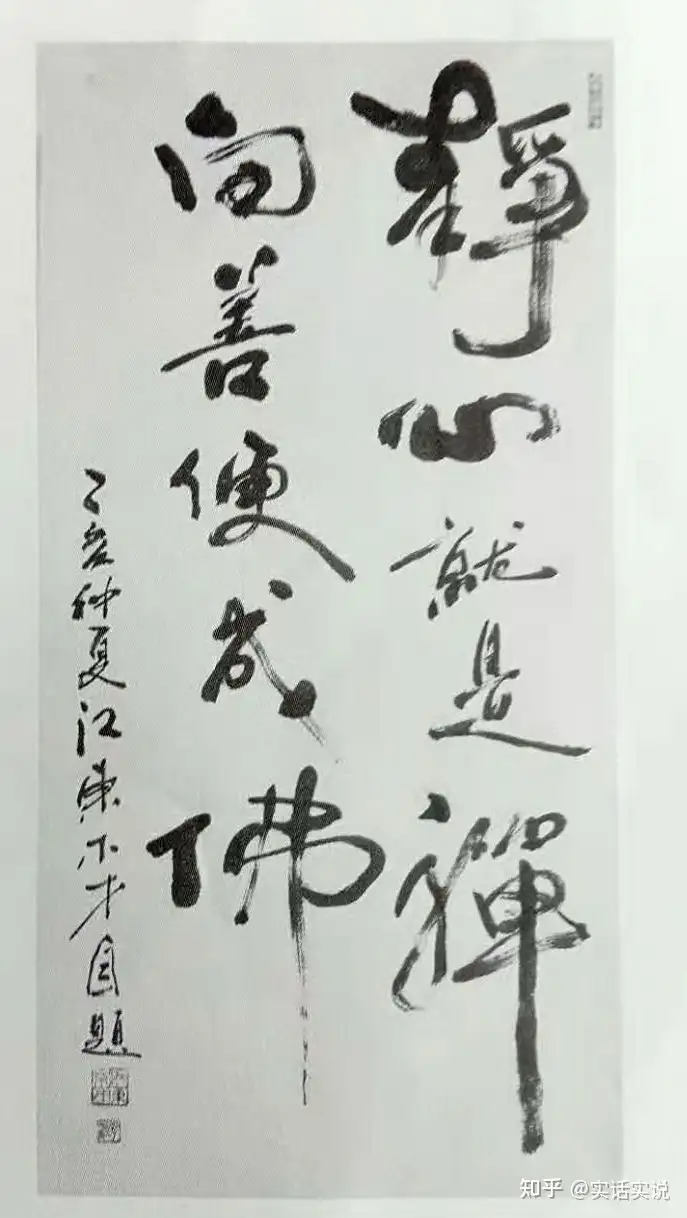 靜心就是禪
向善便成佛
丁亥仲夏江東不才自題
知乎 @实话实说